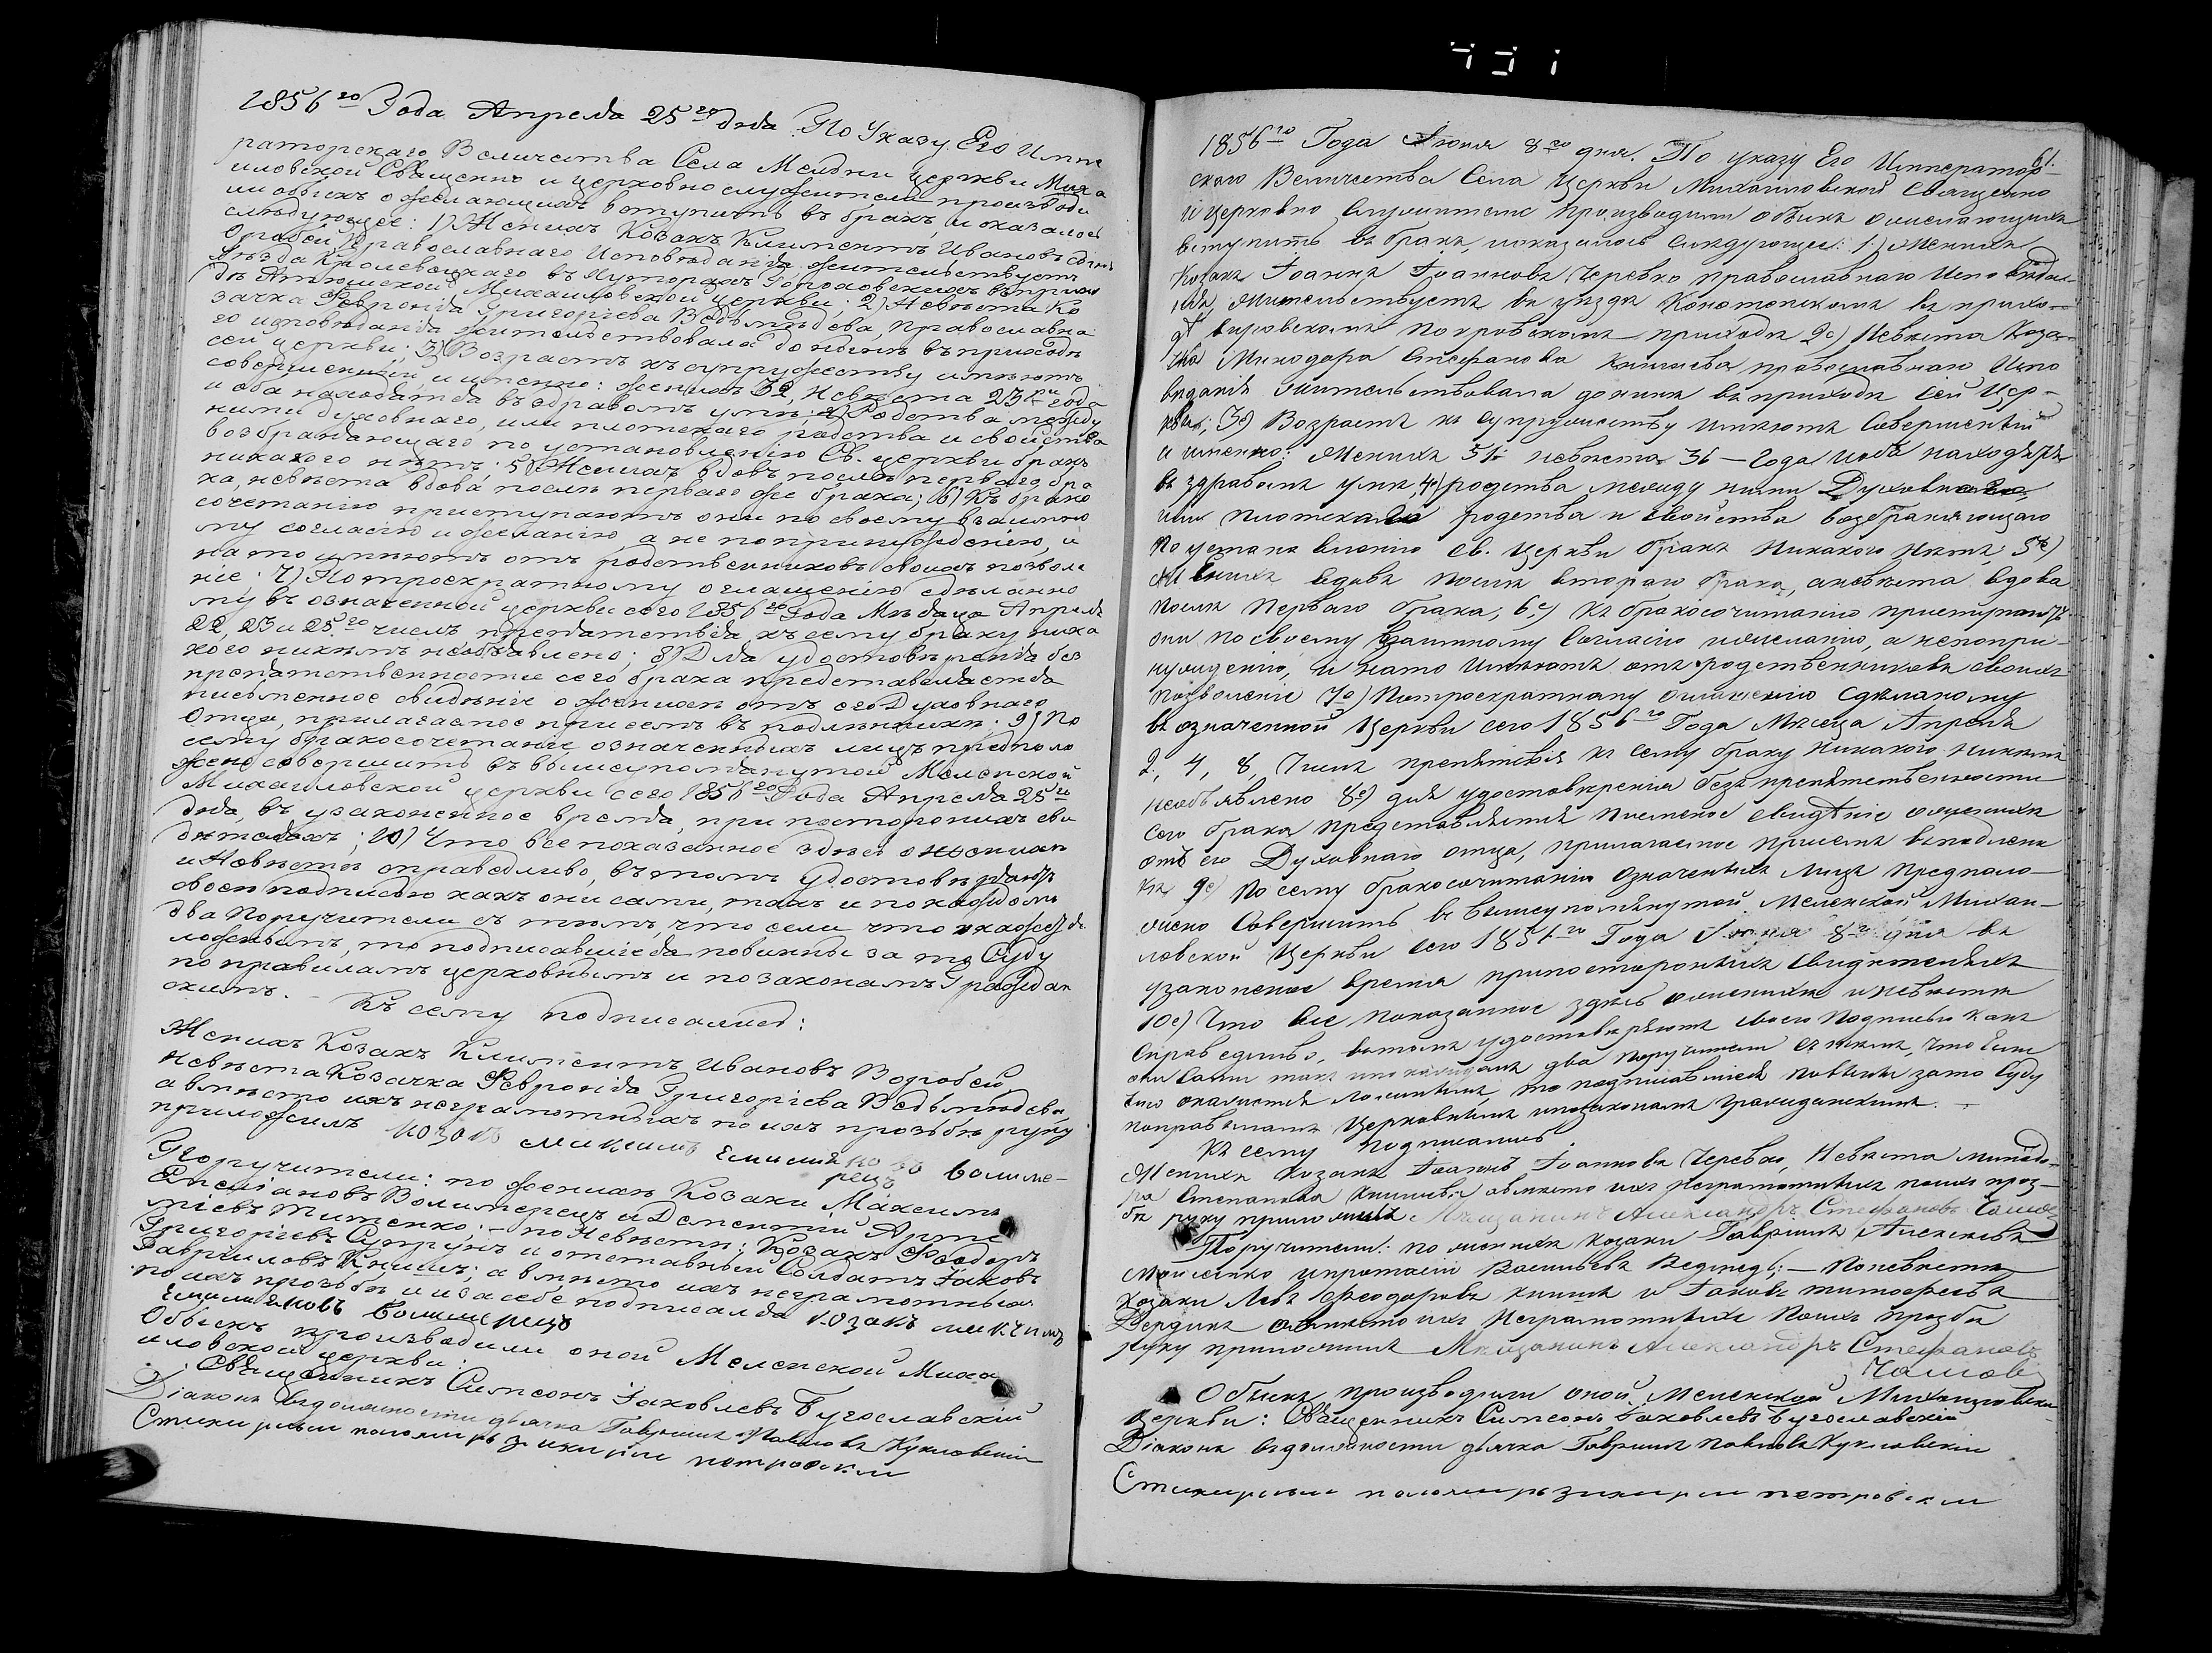 1856го Года Апреля 25го дня. По Указу Его Импе
раторскаго Величества Села Мельни церкви Миха
иловской Священно и церковно служители производи
ли обыск о желающих вступить въ бракъ, и оказалось
следующее: 1) Женихъ Козакъ Климентъ Ивановъ сынъ
Оробей Православнаго Исповѣданія жительствуетъ
Уѣзда Кролевецкаго въ Хуторахъ Гороховскихъ въ прихо
дѣ Михаиловской церкви; 2) Невѣста Ко
зачка Февронія Григоріева Ведьмѣдева, Православна
го исповѣданія жительствовала донынѣ въ приходѣ
сей церкви; 3) Возрастъ къ супружеству имѣютъ
совершенный, и именно: женихъ 32, Невѣста 23 года
и оба находятся въ здравомъ умѣ; 4) Родства между
ними духовнаго, или плотскаго родства и свойства
возбраняющаго по установленію Св. церкви бракъ
никакого нѣтъ; 5) Женихъ вдовъ послѣ перваго бра
ка, невѣста вдова послѣ перваго же брака; 6) Къ брако
сочетанію приступаютъ они по своему взаимно
му согласію и желанію, а не по принужденію, и
на то имѣютъ отъ родственниковъ своихъ позволе
ніе; 7) По троекратному оглашенію сдѣланно
му въ означенной церкви сего 1856го Года Мѣсяца Апреля
22, 23 и 25го числъ, препятствія къ сему браку ника
кого никѣмъ необъявлено; 8) Для удостовѣренія без
препятственности сего брака представляется
письменное свидѣніе о женихѣ отъ его Духовнаго
Отца, прилагаемое при семъ въ подлинникѣ. 9) По
сему бракосочетаніе означенныхъ лицъ предполо
жено совершить въ вышеупомянутой Меленской
Михаиловской церкви сего 1856го Года Апреля 25го
дня, въ узаконенное время, при постороннихъ сви
дѣтеляхъ; 10) Что все показанное здѣсь о женихѣ
и Невѣстѣ справедливо, въ томъ удостовѣряютъ
своею подписью какъ они сами, такъ и по каждомъ
два Поручители съ тѣмъ, что если что окажется
ложнымъ, то подписавшіеся повинны за то Суду
по правиламъ церковнымъ и по законамъ Граждан
скимъ. - Къ сему подписались:
Женихъ Козакъ Климентъ Ивановъ Воробей,
Невѣста Козачка Февронія Григоріева Ведьмѣдева,
а вмѣсто ихъ неграмотныхъ по ихъ прозьбѣ руку
приложилъ козакъ максимъ Волиме-
рецъ
Поручители: по женихѣ Козаки Максимъ
Емеліановъ Волимерецъ и Дементій Арте
міевъ Тищенко; - по Невѣстѣ: Козакъ Феодоръ
Григоріевъ Супрунъ и отставный Солдатъ Іаковъ
Гавриловъ Книшъ; а вмѣсто ихъ неграмотныхъ
по ихъ прозьбѣ и за себе подписался козакъ максимъ
Волимерецъ
Обыскъ производили оной Меленской Миха
иловской церкви:
Священникъ Симеонъ Іаковлевъ Бугославскій
Діаконъ въ должности дьячка Гавріилъ Павловъ Кукловскій
Стихирный пономарь захарій петровскій
61.
1856го Года Іюня 8го дня. По указу Его Император-
скаго Величества Села Церкви Михаиловской Священно
и церковно служители производили обыскъ о желающихъ
вступить въ бракъ, и оказалось слѣдующее: 1) Женихъ
Козакъ Іоаннъ Іоанновъ Черевко православнаго Исповѣда-
нія, жительствуетъ въ уѣздѣ Конотопскомъ въ прихо-
дѣ Покровскомъ приходѣ 2е) Невѣста Коза-
чка Минодора Стефанова Книшева православнаго Испо
веданія жительствовала донинѣ въ приходѣ сей Цер-
кви; 3е) Возрастъ къ супружеству имѣютъ Совершенный
и именно: Женихъ 51 невѣста 36 – года и оба находятся
въ здравомъ умѣ, 4е) родства между ними Духовнаго,
или плотскаго родства и свойства возбраняющаго
по установленію св. Церкви бракъ Никакого Нѣтъ; 5е)
Женихъ вдовъ послѣ втораго брака, а невѣста вдова
послѣ перваго брака; 6е) Къ бракосочитанію приступаютъ
они по своему взаимному согласію и желанію, а не по при-
нужденію, и на то Имѣютъ отъ родственниковъ своихъ
позволеніе 7е) По троекратному оглашенію Сдѣланому
въ означенной Церкви сего 1856го Года Мѣсяца Апреля
2, 4, 8, Числъ препятствія къ сему браку никакого никѣмъ
необъявлено 8е) для удостовѣренія безъ препятственности
сего брака представляется писменое свидѣніе о женихѣ
отъ его Духовнаго отца, прилагаемое присемъ въ подлени
кѣ 9е) По сему бракосочитаніи Означеныхъ лицъ предполо-
жено Совершить въ вышеупомянутой Меленской Михаи-
ловской Церкви сего 1856го Года Іюня 8го дня въ
узаконеное время припостороныхъ свидѣтеляхъ
10е) Что все показанное здѣсь о женихѣ и невѣстѣ
справедливо, въ томъ удостовѣряютъ своею подписью какъ
они сами такъ и по каждомъ два поручители съ тѣмъ, что Если
что окажется ложнымъ, то подписавшіеся повинни за то суду
по правиламъ Церковнымъ и по законамъ гражданскимъ. –
Къ сему подписались.
Женихъ козакъ Іоаннъ Іоанновъ Черевко, Невѣста минодо-
ра Стефанова Книшева а вмѣсто ихъ Неграмотныхъ по ихъ проз-
бѣ руку приложилъ Мѣщанинъ Александръ Стефановъ
Поручители: по женихѣ козаки Гавріилъ Алексеевъ
Мойсенко и протасій Васильевъ Ведмедь; – По невѣстѣ
козаки Левъ Феодоровъ книшъ и Іаковъ тимофеевъ
а вмѣсто ихъ Неграмотныхъ По ихъ прозбѣ
руку приложилъ Мѣщанинъ Александръ Стефановъ
Обыскъ производили оной Меленской Михаиловской
Церкви: Священникъ Симеонъ Іаковлевъ Бугославскій
Діаконъ въ должности дьячка Гавріилъ Павловъ Кукловскій
Стихирный пономарь захарій петровскій